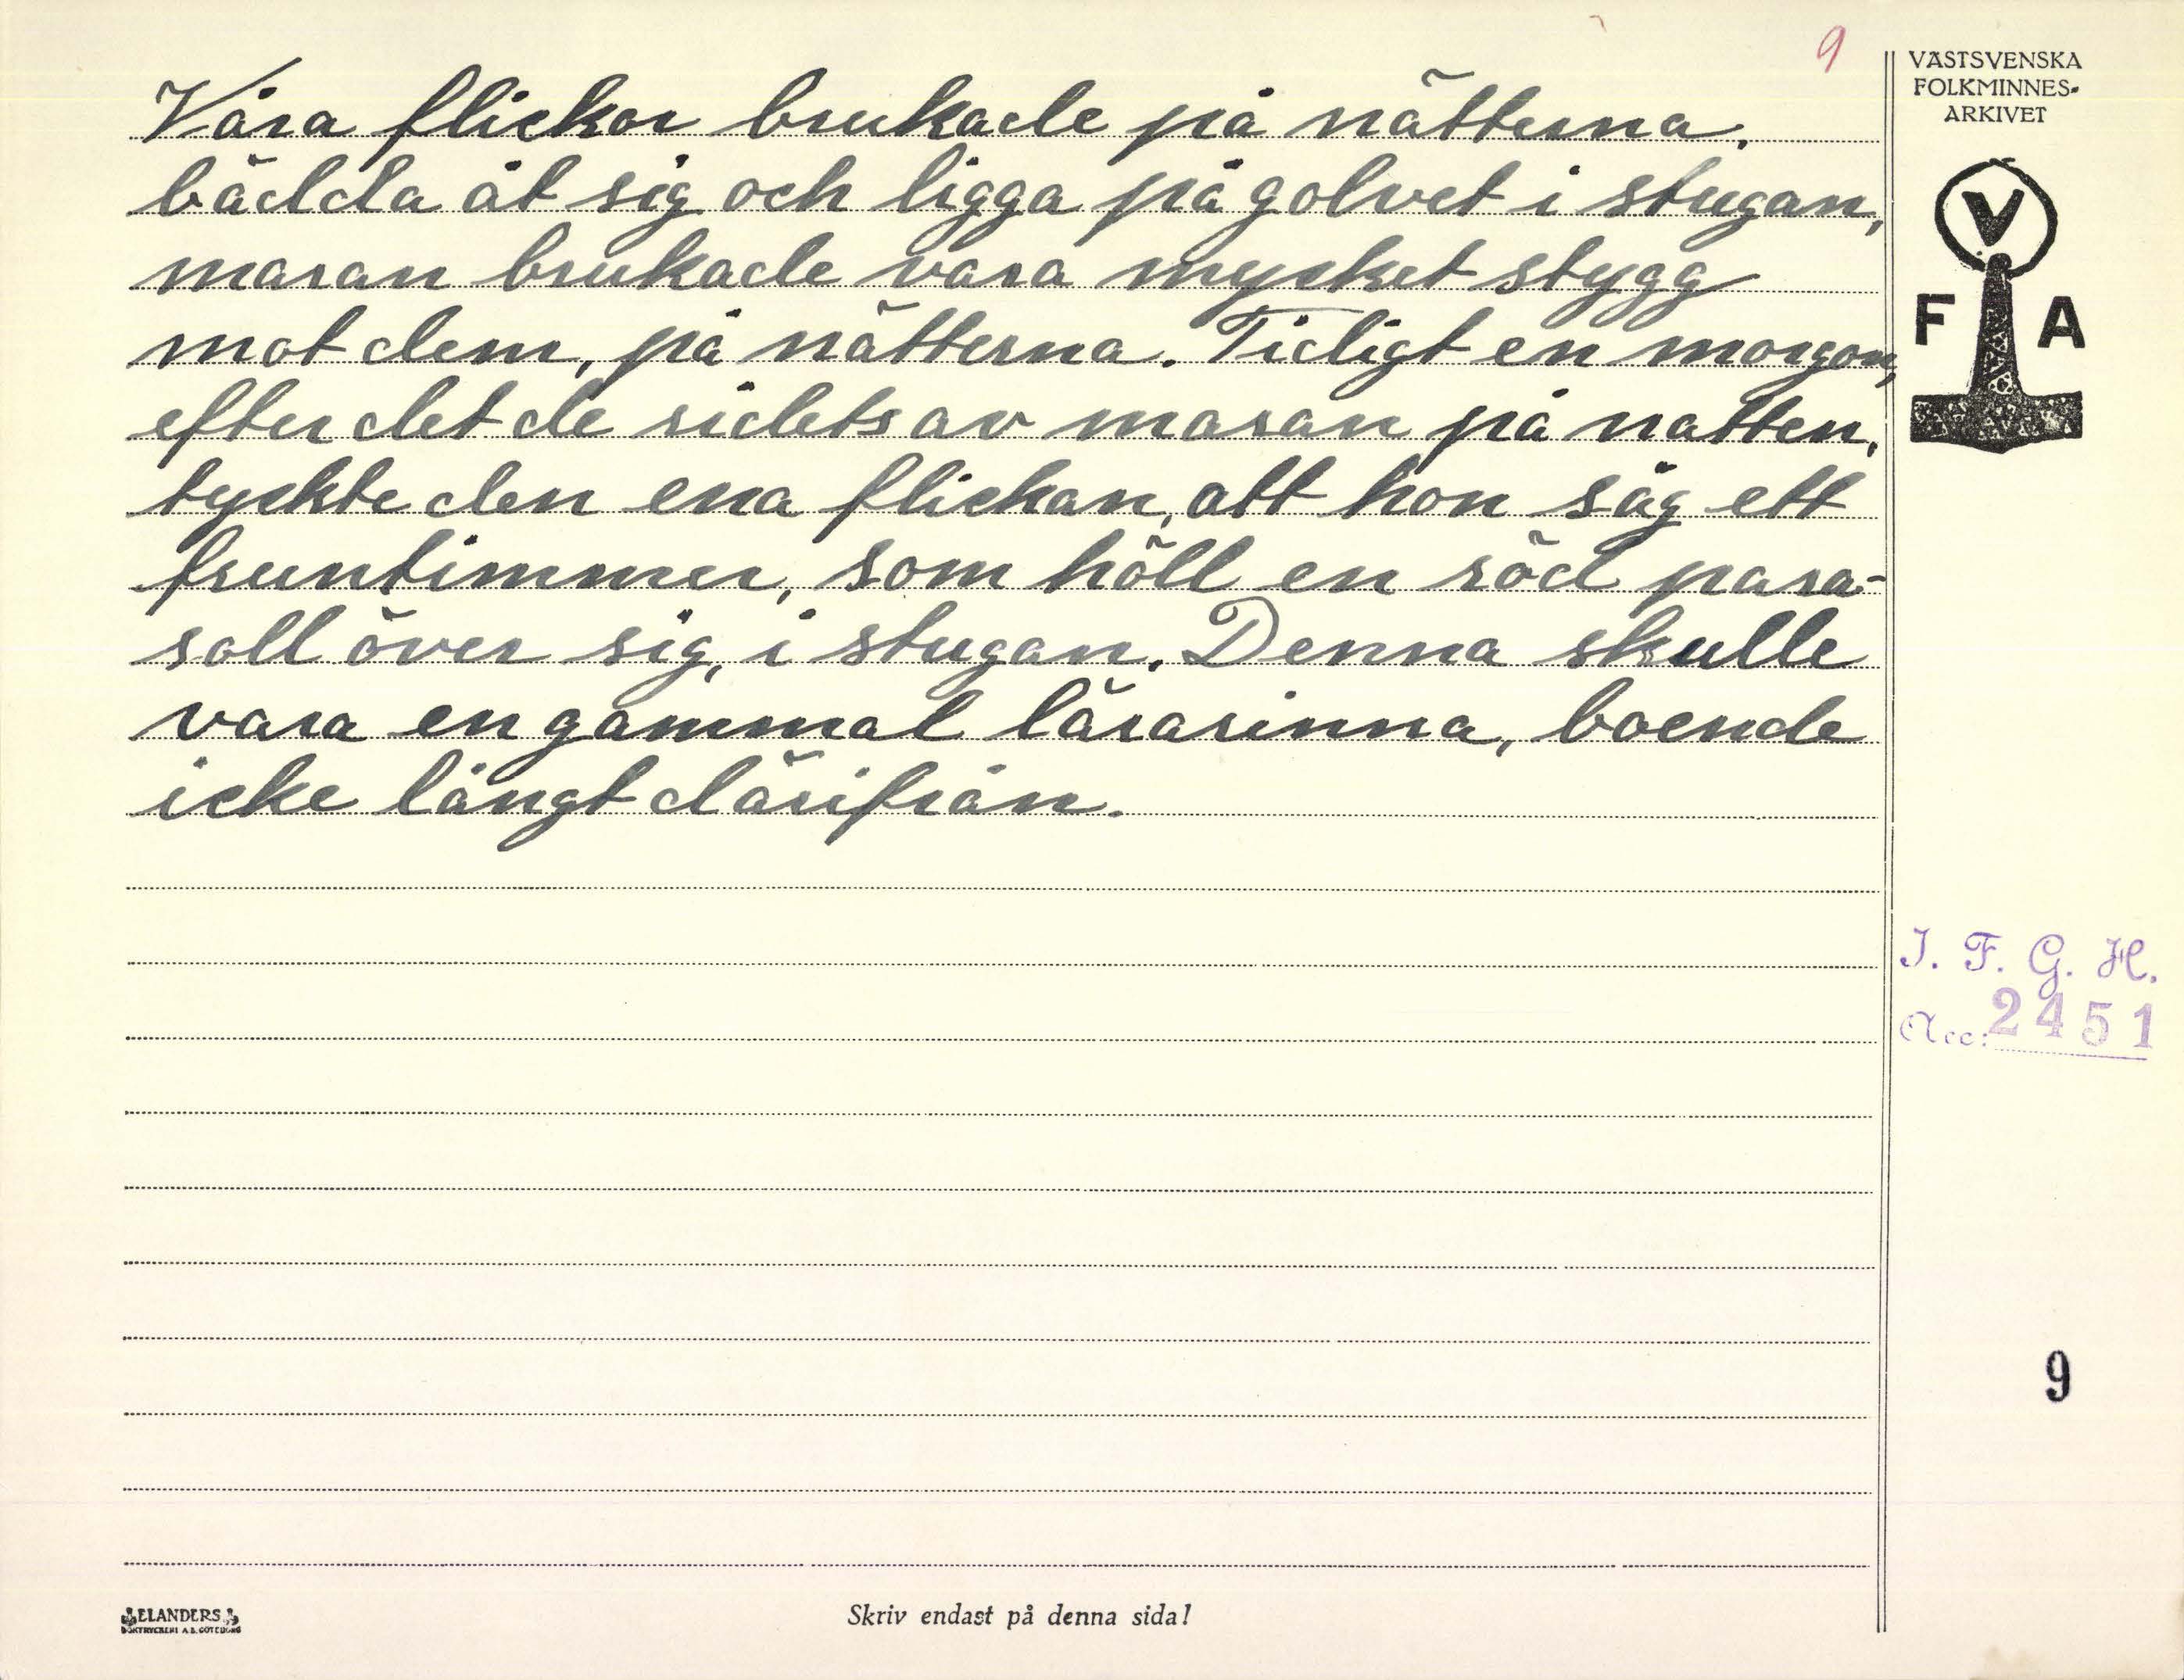 9
VÄSTSVENSKA
FOLKMINNES-
ARKIVET
V
F A
Våra flickor brukade på nätterna,
bädda åt sig och ligga på golvet i stugan,
maran brukade vara mycket stygg
mot dem, på nätterna. Tidligt en morgon,
efter det de ridets av maran på natten,
tyckte den ena flickan, att hon såg ett
fruntimmer, som höll en röd para-
soll över sig, i stugan. Denna skulle
vara en gammal lärarinna, boende
icke långt därifrån.
I. F. G. H.
Acc: 2451
9
ELANDERS
BOKTRYCKERI A.B. GÖTEBORG
Skriv endast på denna sida!